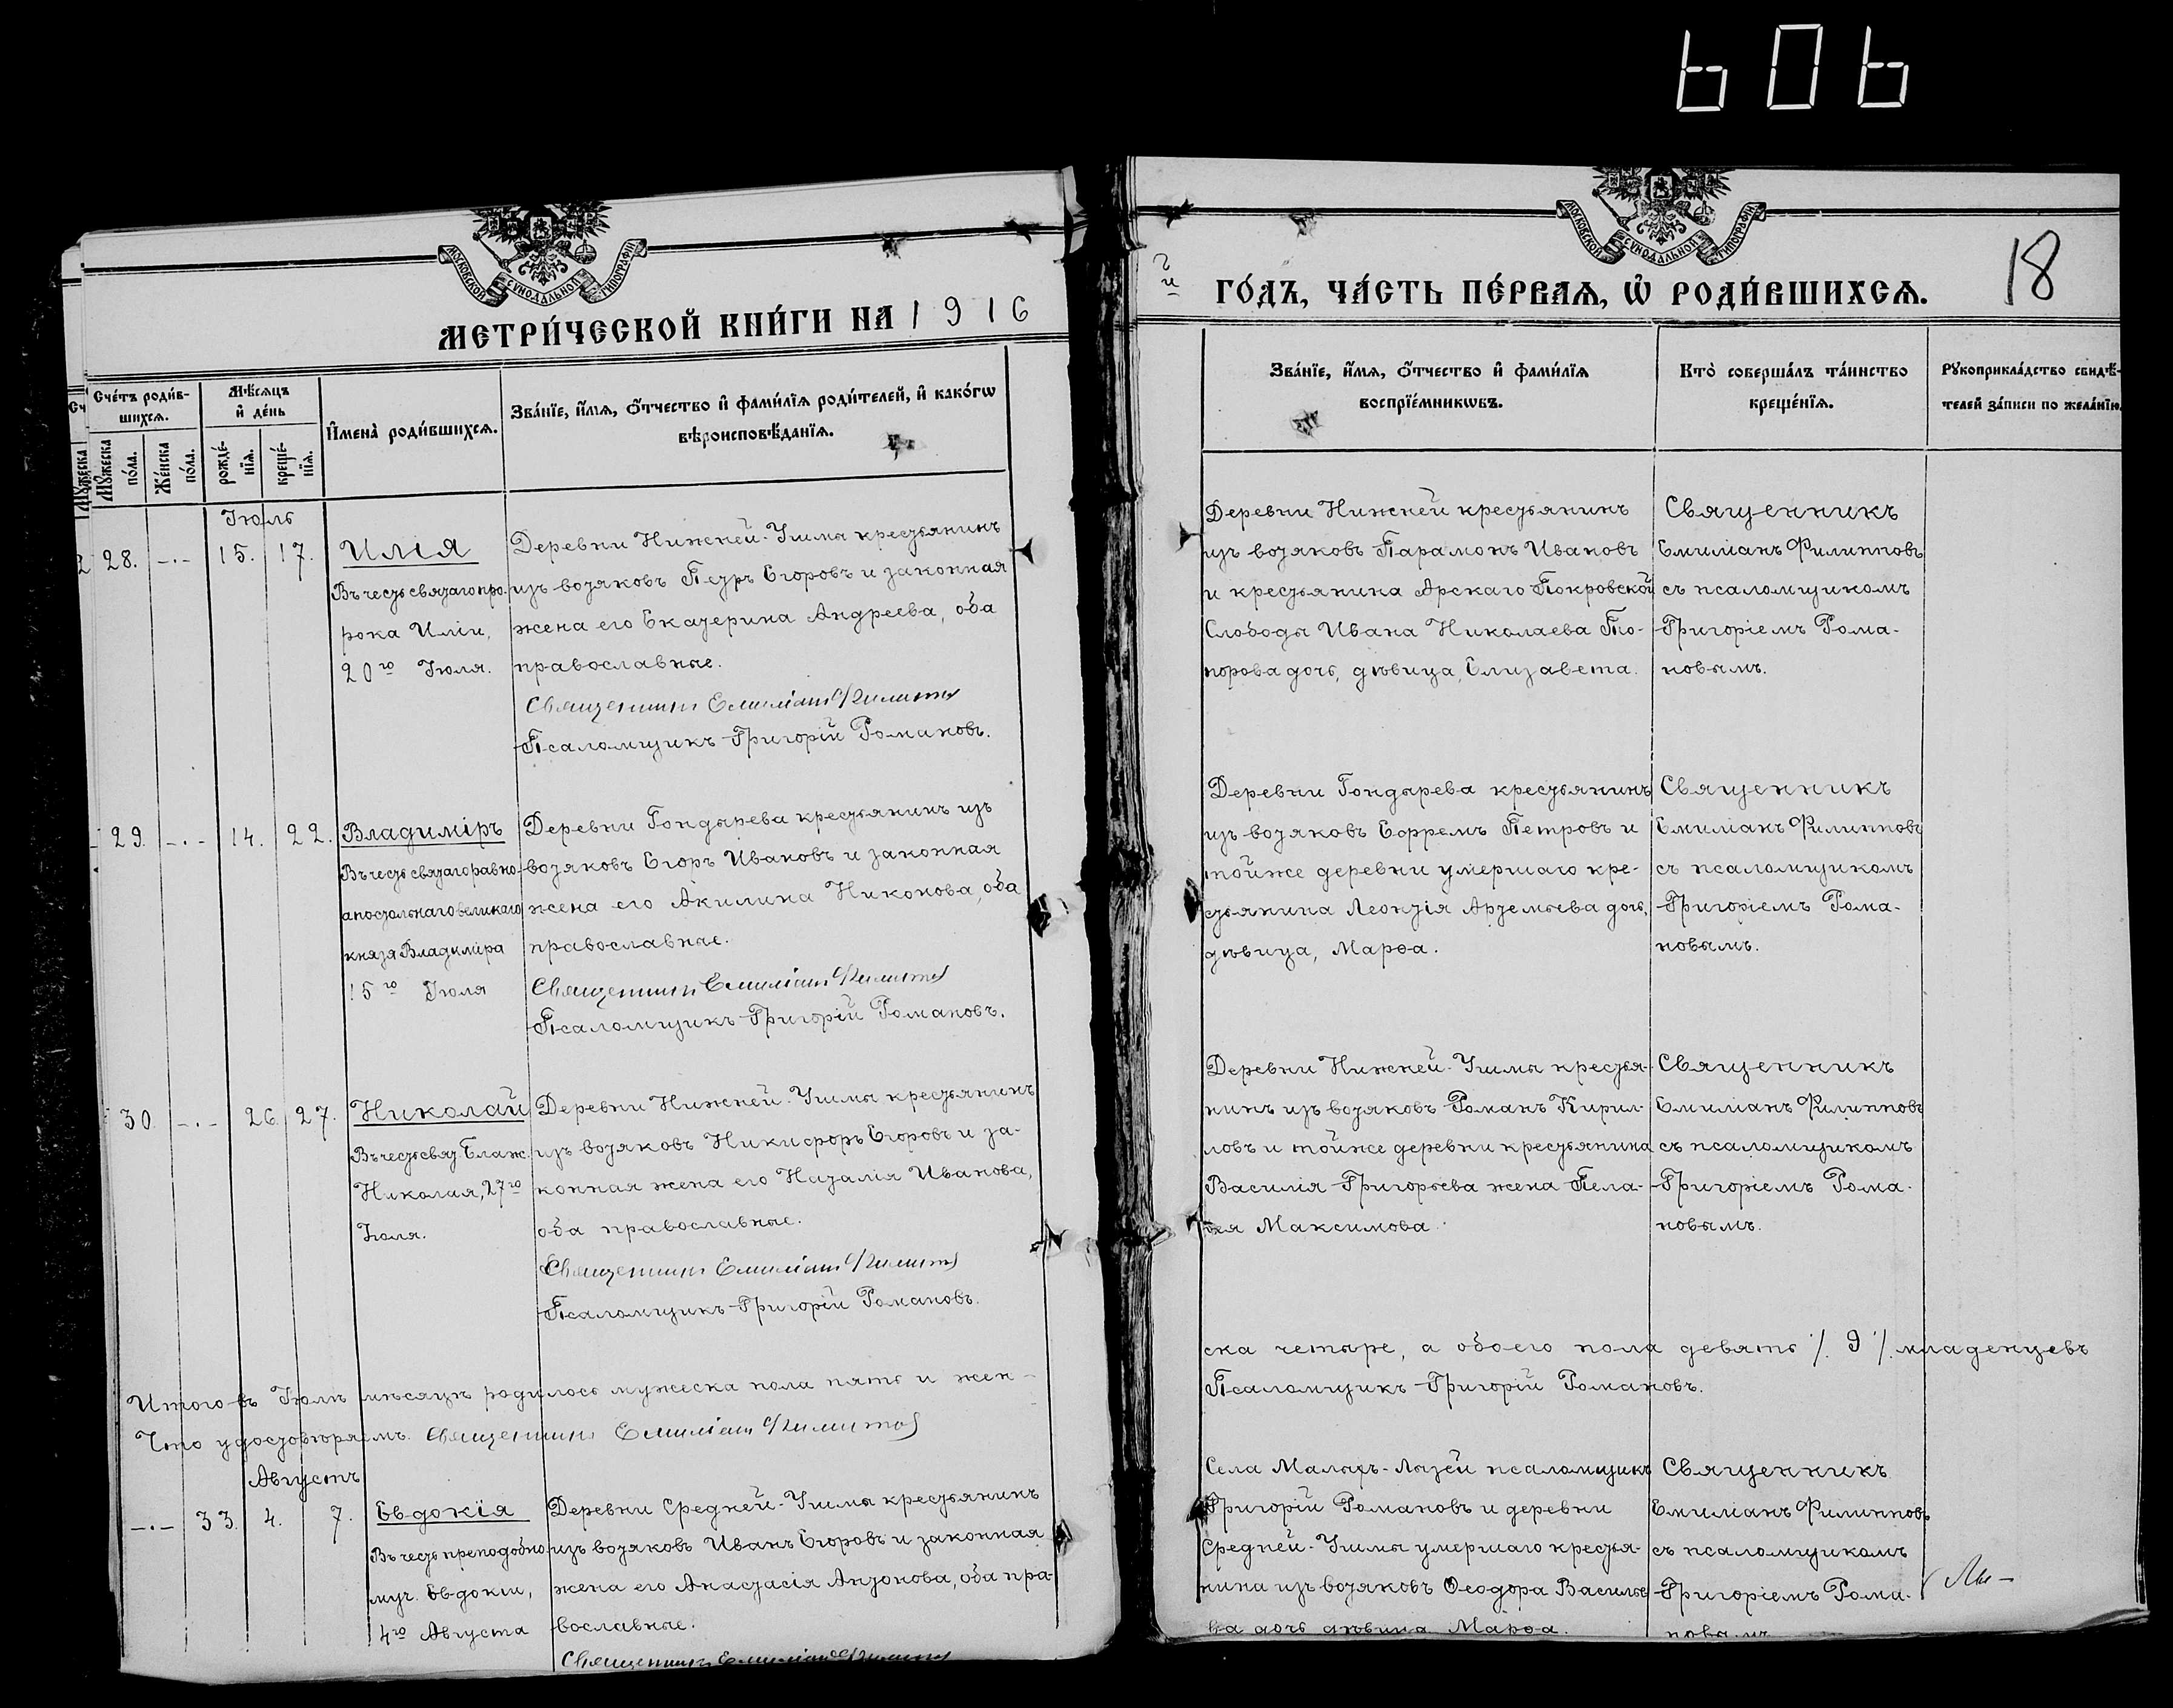 606
МОСКОВСКОЙ СУНОДАЛЬНОЙ ТИПОГРАФІИ
МЕТРИ́ЧЕСКОЙ КНИ́ГИ НА 1916
Сче́тъ роди́в-
шихсѧ.
Мꙋ́жеска
по́ла.
Же́нска
по́ла.
Мѣ́сѧцъ
и҆ де́нь
рожде́-
нїѧ.
креще́-
нїѧ.
И҆мена̀ роди́вшихсѧ.
Зва́нїе, и҆́мѧ, ѻ҆́тчество и҆ фами́лїѧ роди́телей, и҆ како́гѡ
вѣроисповѣ́данїѧ.
Іюль
28. -.- 15. 17.
Илія
Въ честь святаго про-
рока Иліи,
20го Іюля.
Деревни Нижней-Ушмы крестьянинъ
изъ вотяковъ Петръ Егоровъ и законная
жена его Екатерина Андреева, оба
православные.
Священникъ Емиліанъ Филипповъ
Псаломщикъ Григорій Романовъ.
29. -.- 14. 22.
Владиміръ
Въ честь святаго равно-
апостольнаго великаго
князя Владиміра
15го Іюля
Деревни Гондырева крестьянинъ изъ
вотяковъ Егоръ Ивановъ и законная
жена его Акилина Никонова, оба
православные.
Священникъ Емиліанъ Филипповъ
Псаломщикъ Григорій Романовъ.
30. -.- 26. 27.
Николай
Въ честь свят. Блаж.
Николая, 27го
Іюля.
Деревни Нижней-Ушмы крестьянинъ
изъ вотяковъ Никифоръ Егоровъ и за-
конная жена его Наталія Иванова,
оба православные.
Священникъ Емиліанъ Филипповъ
Псаломщикъ Григорій Романовъ.
Итого въ Іюлѣ мѣсяцѣ родилось мужеска пола пять и жен-
Что удостовѣряемъ. Священникъ Емиліанъ Филипповъ
Августъ
-.- 33. 4. 7.
Евдокія
Въ честь преподобно-
муч. Евдокіи,
4го Августа
Деревни Средней-Ушмы крестьянинъ
изъ вотяковъ Иванъ Егоровъ и законная
жена его Анастасія Антонова, оба пра-
вославные.
Священникъ Емиліанъ Филипповъ
МОСКОВСКОЙ СУНОДАЛЬНОЙ ТИПОГРАФІИ
й ГО́ДЪ, ЧА́СТЬ ПЕ́РВАѦ, Ѡ҆ РОДИ́ВШИХСѦ.
18
Зва́нїе, и҆́мѧ, ѻ҆́тчество и҆ фами́лїѧ
воспрїе́мникѡвъ.
Кто̀ соверша́лъ та́инство
креще́нїѧ.
Рꙋкоприкла́дство свидѣ́-
телей за́писи по жела́нїю.
Деревни Нижней крестьянинъ
изъ вотяковъ Парамонъ Ивановъ
и крестьянина Арскаго Покровской
Слободы Ивана Николаева То-
порова дочь, дѣвица, Елизавета.
Священникъ
Емиліанъ Филипповъ
съ псаломщикомъ
Григоріемъ Рома-
новымъ.
Деревни Гондырева крестьянинъ
изъ вотяковъ Ефремъ Петровъ и
тойже деревни умершаго кре-
стьянина Леонтія Артемьева дочь,
дѣвица, Марѳа.
Священникъ
Емиліанъ Филипповъ
съ псаломщикомъ
Григоріемъ Рома-
новымъ.
Деревни Нижней-Ушмы крестья-
нинъ изъ вотяковъ Романъ Кирил-
ловъ и тойже деревни крестьянина
Василія Григорьева жена Пела-
гія Максимова.
Священникъ
Емиліанъ Филипповъ
съ псаломщикомъ
Григоріемъ Рома-
новымъ.
ска четыре, а обоего пола девять ./. 9 ./. младенцевъ
Псаломщикъ Григорій Романовъ.
Села Малыхъ-Лызей псаломщикъ
Григорій Романовъ и деревни
Средней-Ушмы умершаго крестья-
нина изъ вотяковъ Ѳеодора Василье-
ва дочь дѣвица Марѳа.
Священникъ
Емиліанъ Филипповъ
съ псаломщикомъ
Григоріемъ Рома-
новымъ